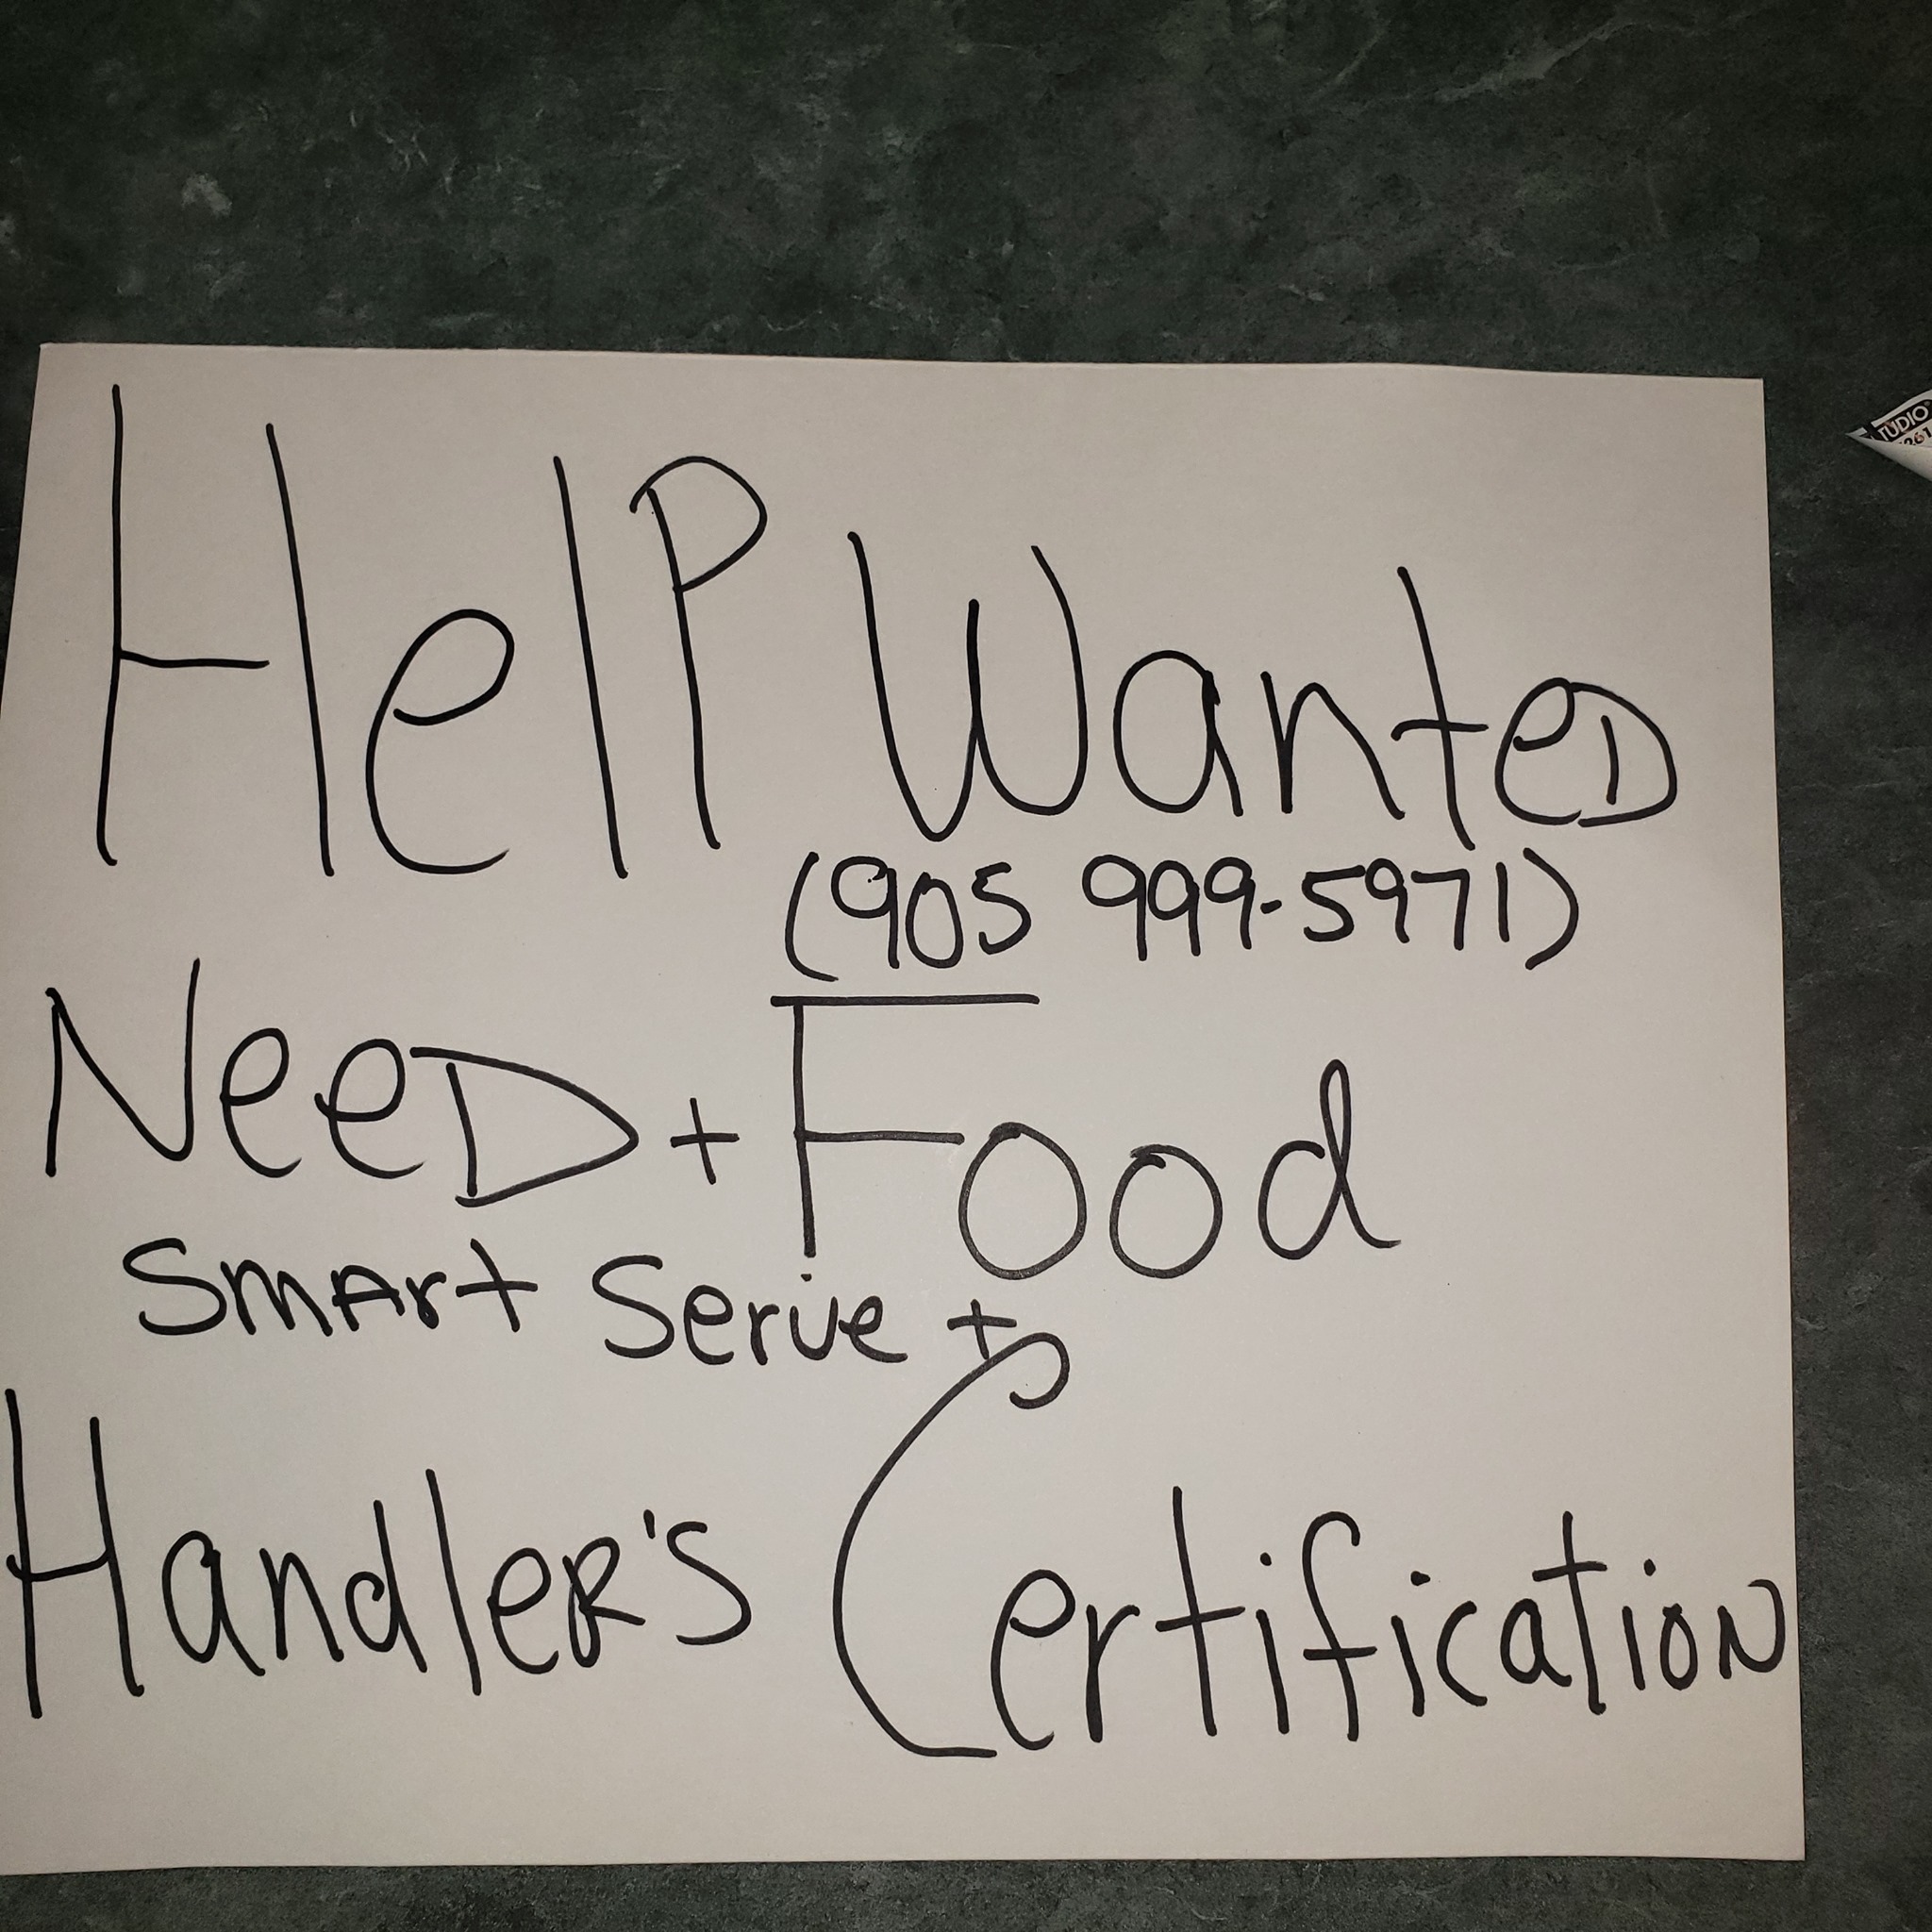 HelP WanteD
(905 999-5971)
NeeD + Food
SmArt Serve +
HandleR's Certification
TUDIO
261